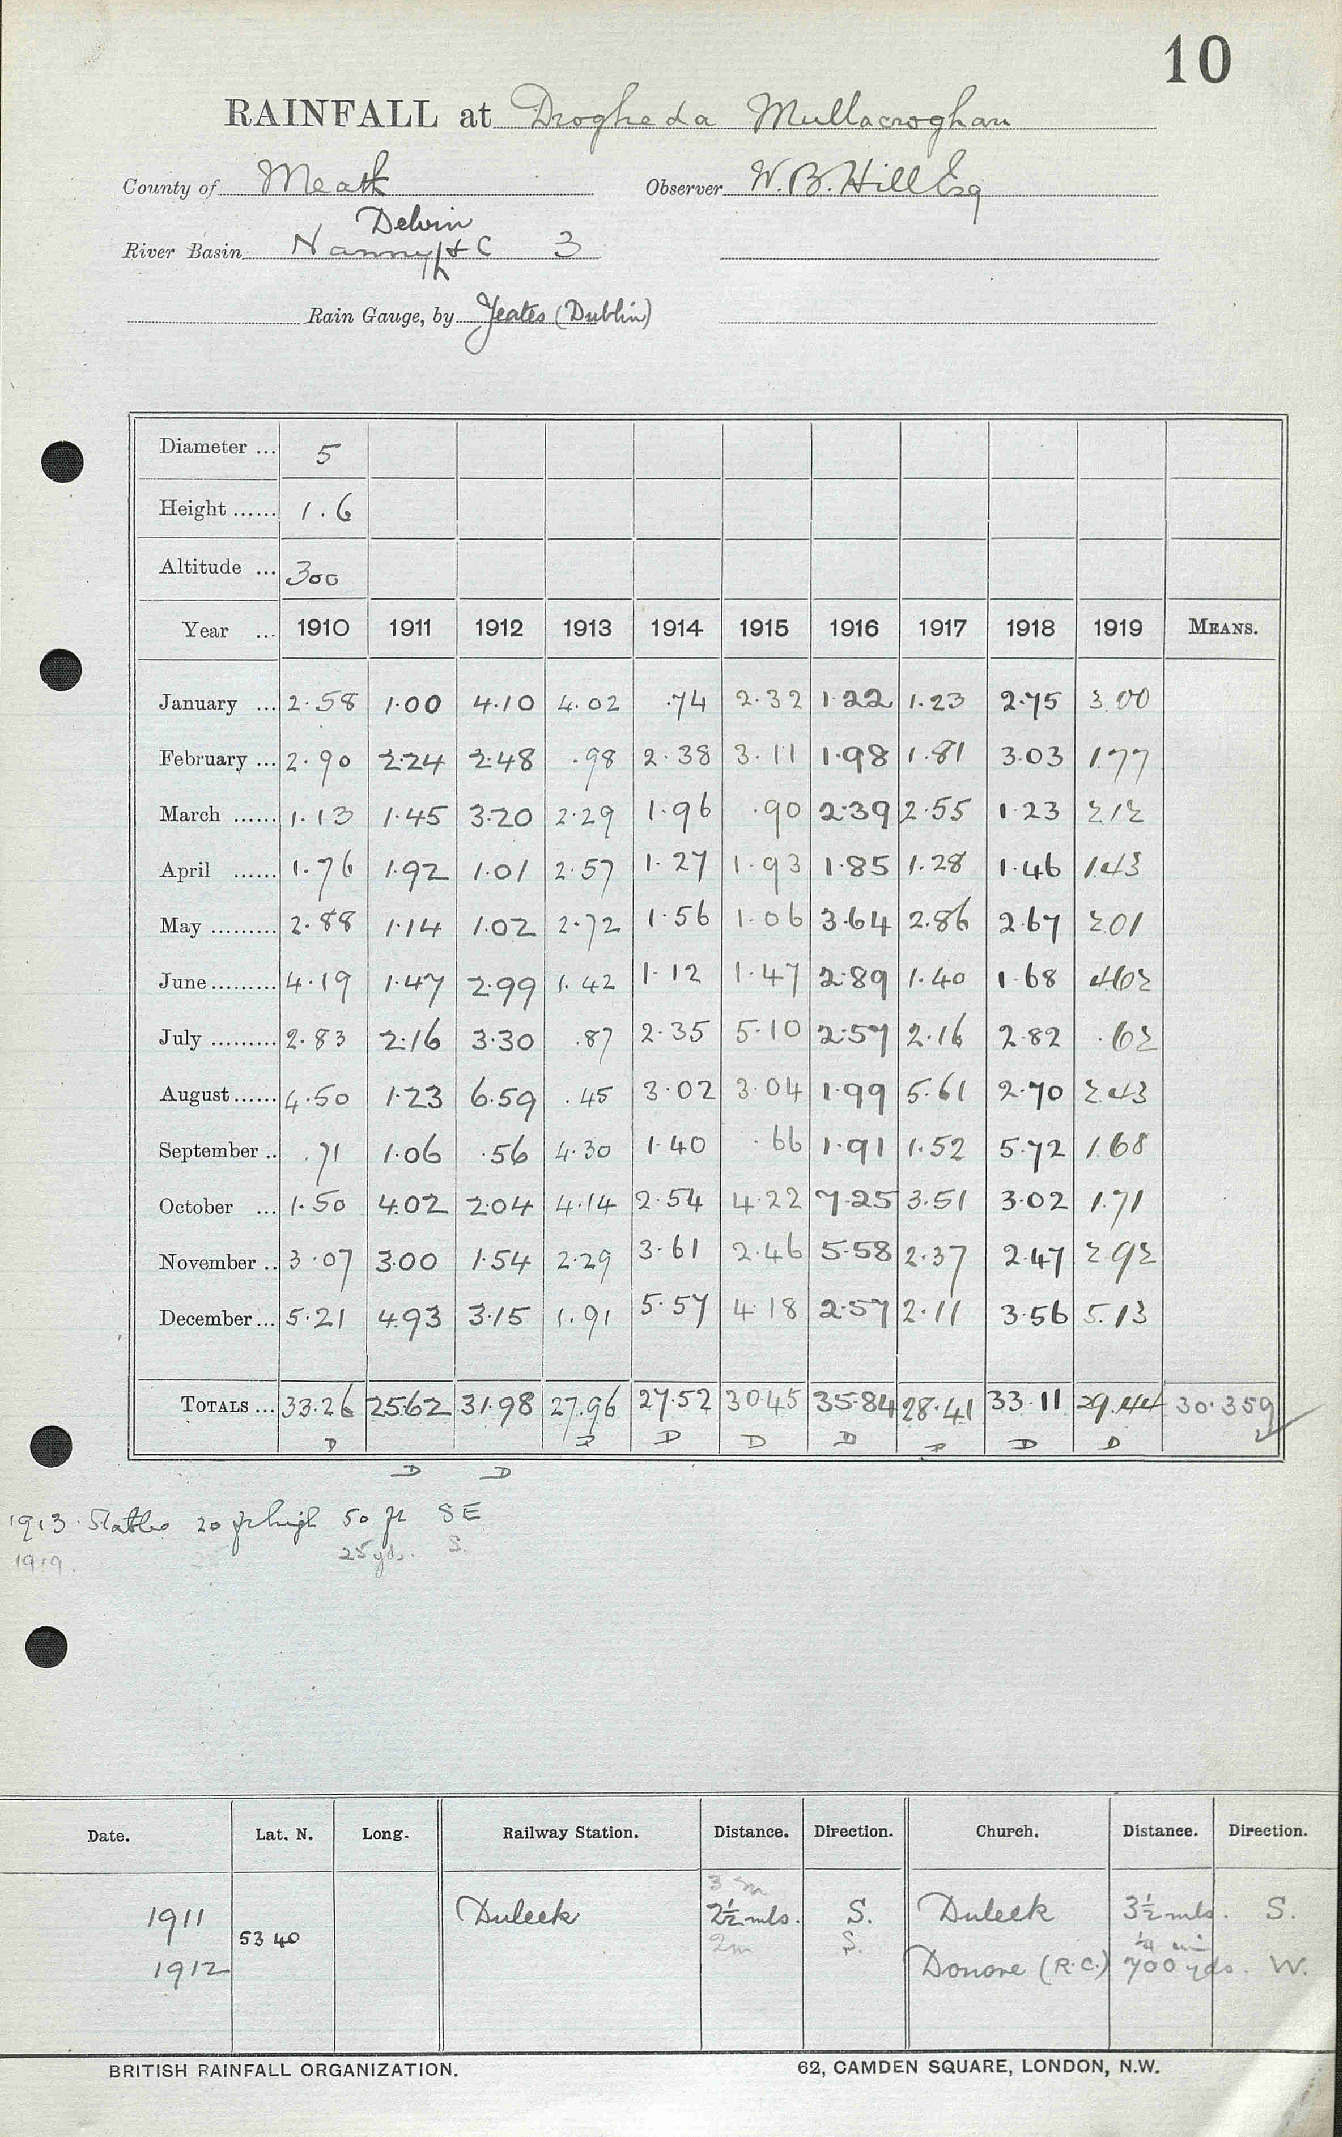 10
RAINFALL at Drogheda Mullacroghan
County of Meath Observer W. B. Hill Esq
Delvin
River Basin Nanny &C 3
Rain Gauge, by Yeates (Dublin)
Diameter ... 5
Height ...... 1.6
Altitude ... 300
Year ... 1910 1911 1912 1913 1914 1915 1916 1917 1918 1919 MEANS.
January ... 2.58 1.00 4.10 4.02 .74 2.32 1.22 1.23 2.75 3.00
February ... 2.90 2.24 2.48 .98 2.38 3.11 1.98 1.81 3.03 1.77
March ...... 1.13 1.45 3.20 2.29 1.96 .90 2.39 2.55 1.23 2.12
April ...... 1.76 1.92 1.01 2.57 1.27 1.93 1.85 1.28 1.46 1.43
May ......... 2.88 1.14 1.02 2.72 1.56 1.06 3.64 2.86 2.67 2.01
June ......... 4.19 1.47 2.99 1.42 1.12 1.47 2.89 1.40 1.68 4.62
July ......... 2.83 2.16 3.30 .87 2.35 5.10 2.57 2.16 2.82 .62
August ...... 4.50 1.23 6.59 .45 3.02 3.04 1.99 5.61 2.70 2.43
September .. .71 1.06 .56 4.30 1.40 .66 1.91 1.52 5.72 1.68
October ... 1.50 4.02 2.04 4.14 2.54 4.22 7.25 3.51 3.02 1.71
November .. 3.07 3.00 1.54 2.29 3.61 2.46 5.58 2.37 2.47 2.92
December ... 5.21 4.93 3.15 1.91 5.57 4.18 2.57 2.11 3.56 5.13
TOTALS ... 33.26 25.62 31.98 27.96 27.52 30.45 35.84 28.41 33.11 29.44 30.359
D D D D D D D D
D D
1913 Stables 20 ft high 50 ft SE
1919. 25 yds. S.
Date. Lat. N. Long. Railway Station. Distance. Direction. Church. Distance. Direction.
3 m
1911 53 40 Duleek 2½ mls. S. Duleek 3½ mls. S.
2m S. ¼ mi
1912 Donore (R.C.) 700 yds. W.
BRITISH RAINFALL ORGANIZATION. 62, CAMDEN SQUARE, LONDON, N.W.